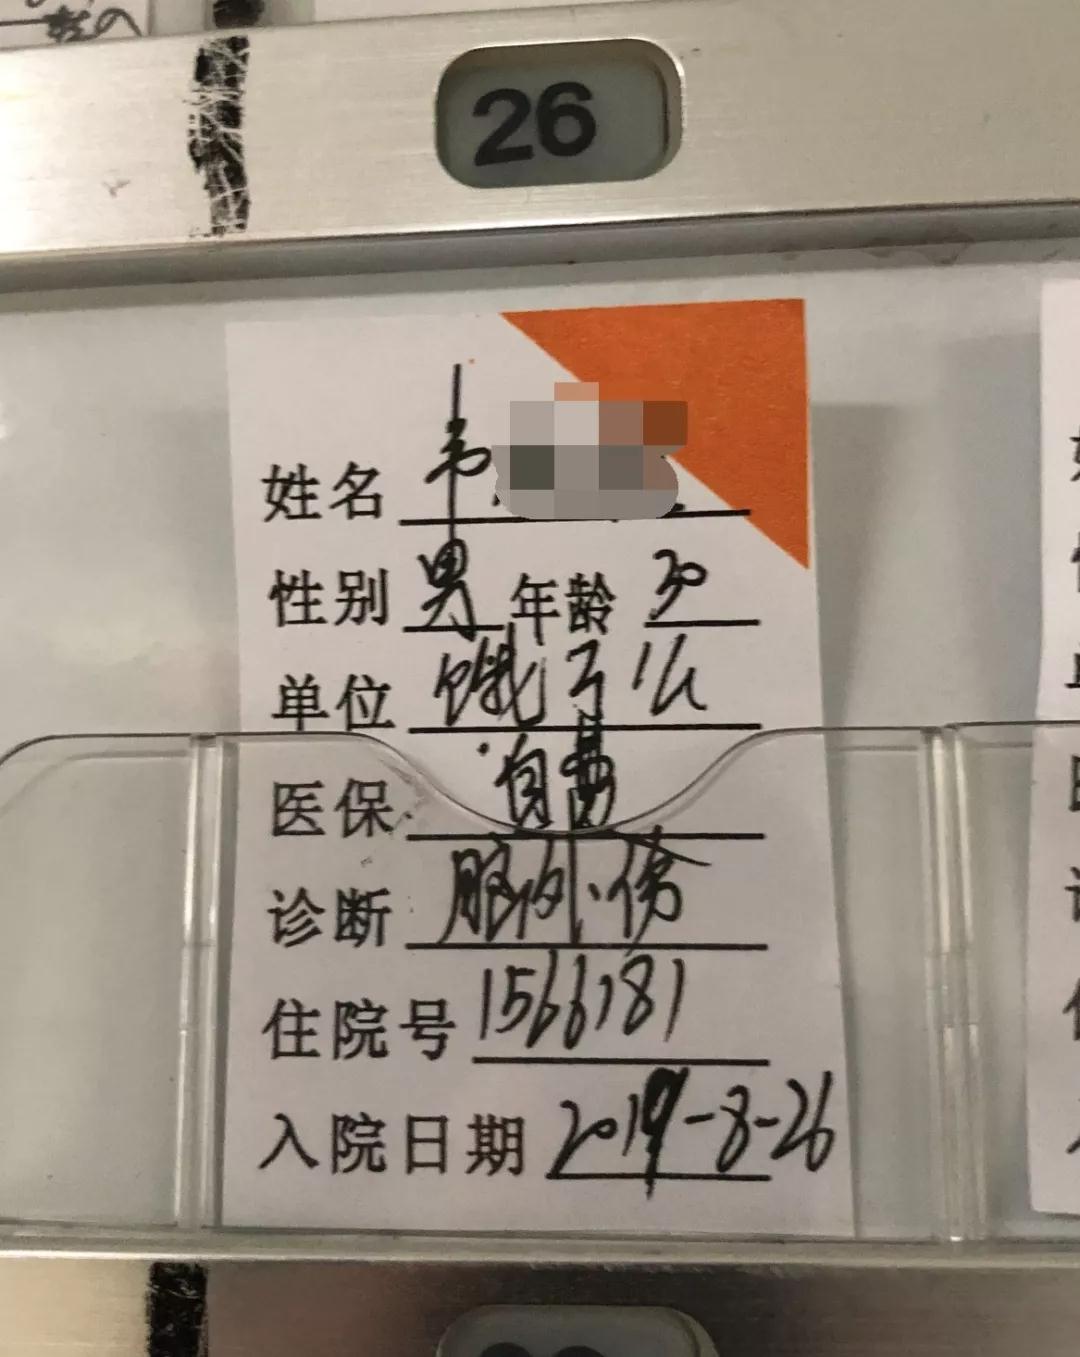 26
姓名 韦
性别 男 年龄 30
单位 饿了么
医保 自费
诊断 脑外伤
住院号 1566181
入院日期 2019-8-26